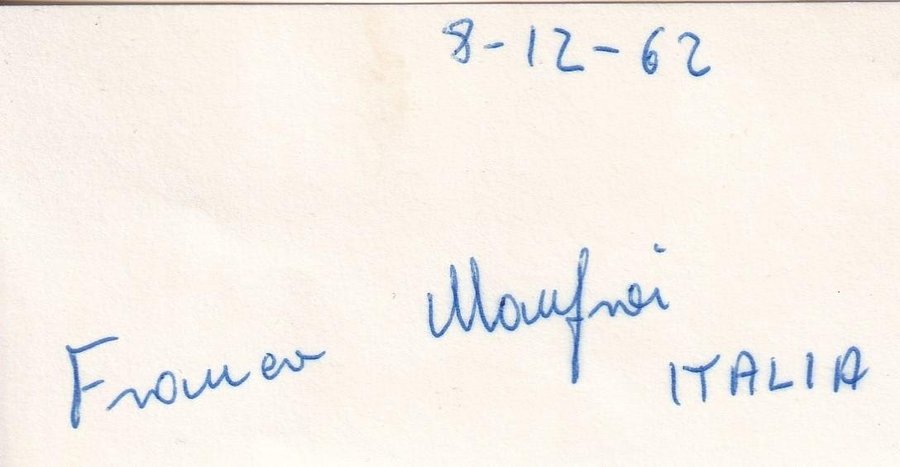 8-12-62
Franco Manfroi
ITALIA